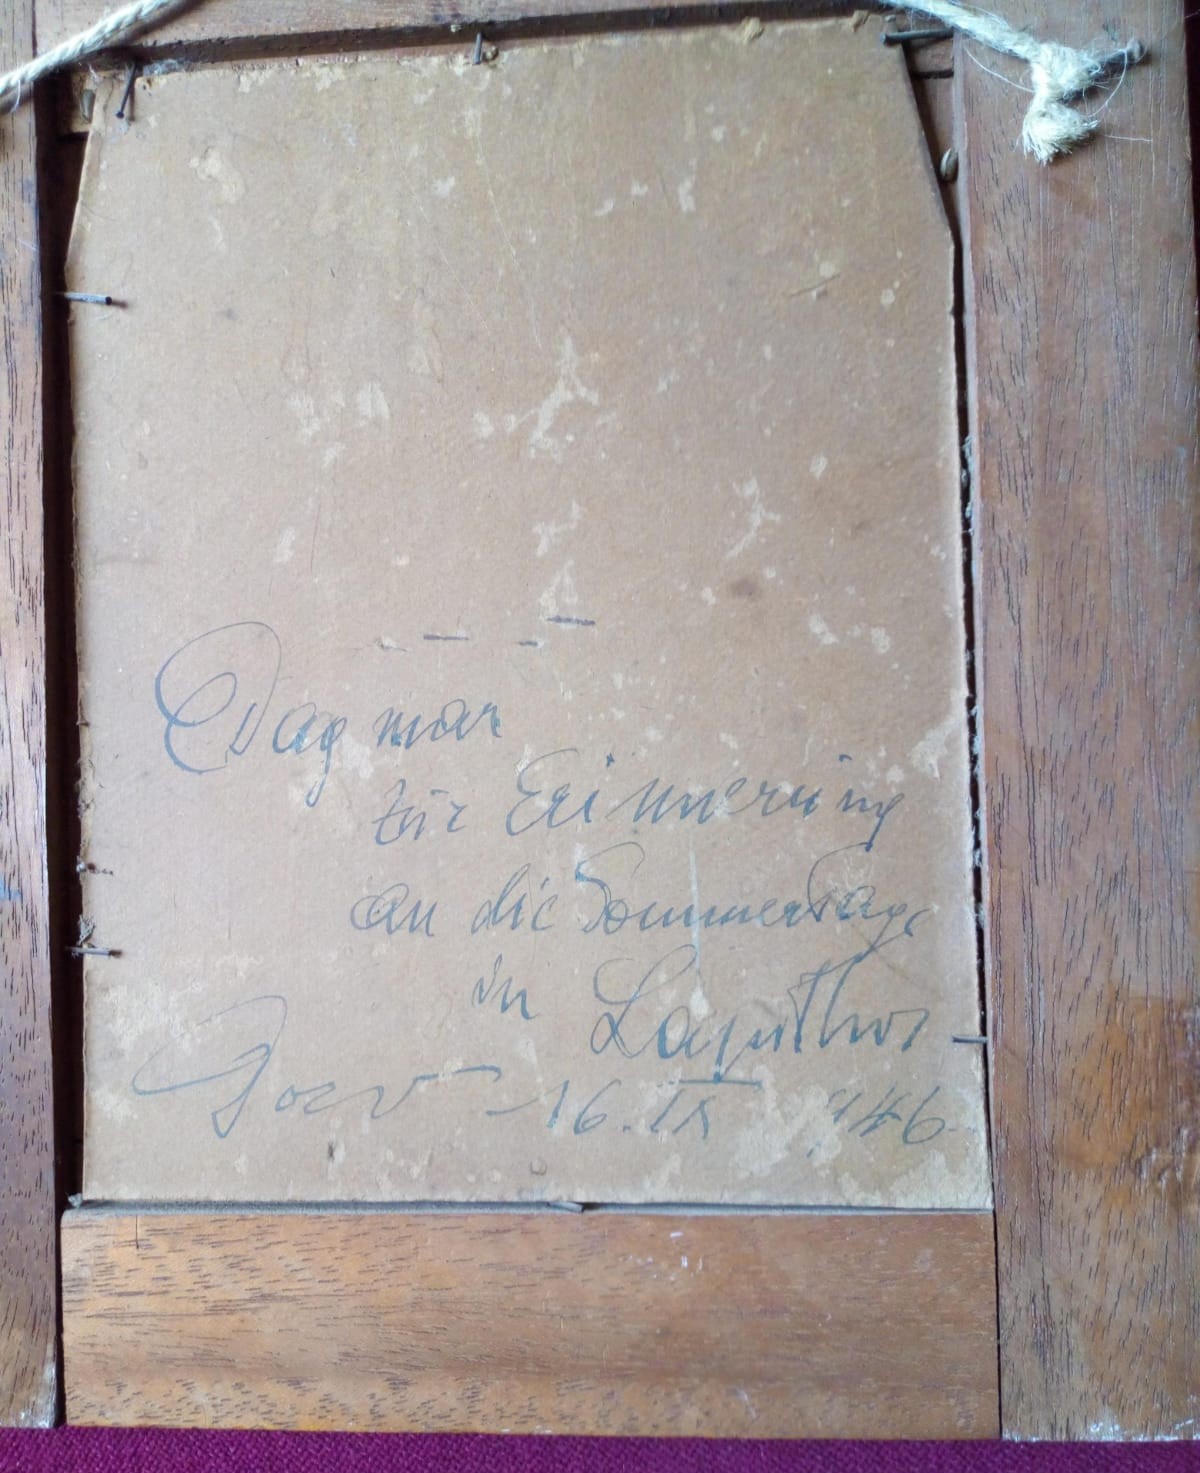 Dagmar
zur Erinnerung
an die Sommertage
in Lapithos
16. IX 946